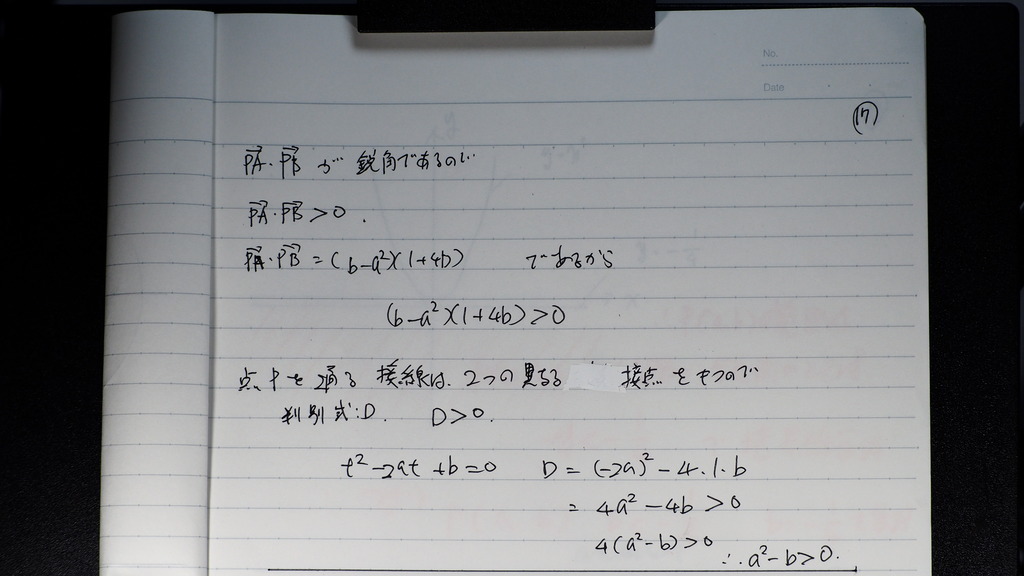 No.
Date
⑰
PA・PB が 鋭角であるので
PA・PB>0.
PA・PB=(b-a²)(1+4b) であるから
(b-a²)(1+4b)>0
点Pを通る 接線は、2つの異なる 接点をもつので
判別式:D. D>0.
t²-2at+b=0 D=(-2a)²-4・1・b
=4a²-4b>0
4(a²-b)>0 ∴a²-b>0.